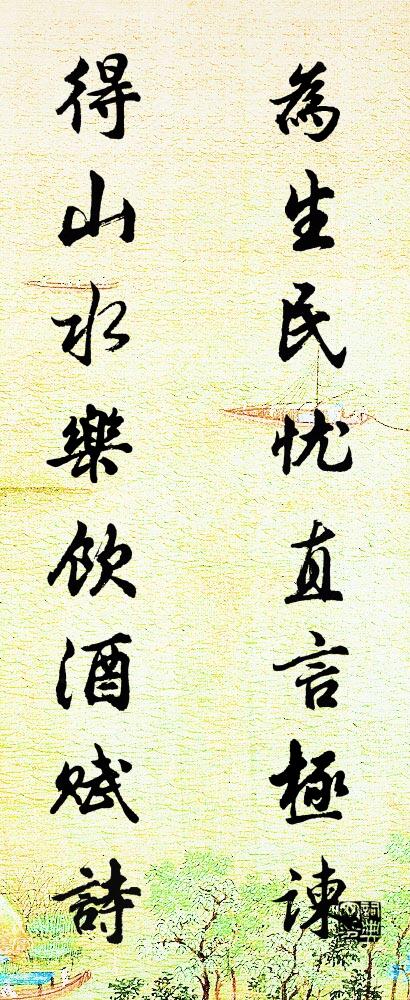 為生民忧直言極諫
得山水樂飲酒赋詩